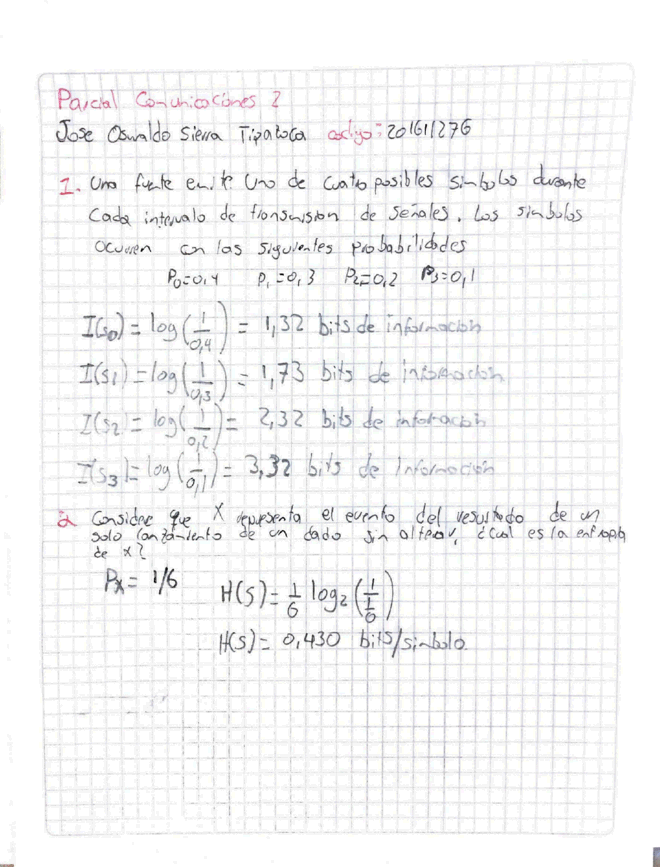 Parcial Comunicaciones 2
Jose Oswaldo Sierra Tipatoca codigo: 201611276
1. Una fuente emite Uno de cuatro posibles Simbolos durante
Cada intervalo de transmision de señales. Los simbolos
Ocurren con las siguientes probabilidades
P0=0,4 P1=0,3 P2=0,2 P3=0,1
I(s0) = log(1/0,4) = 1,32 bits de información
I(s1) = log(1/0,3) = 1,73 bits de información
I(s2) = log(1/0,2) = 2,32 bits de información
I(s3) = log(1/0,1) = 3,32 bits de Información
2 Considere que X representa el evento del resultado de un
solo lanzamiento de un dado sin alterar, ¿cual es la entropía
de x?
Px = 1/6 H(S) = 1/6 log2 (1/(1/6))
H(S) = 0,430 bits/simbolo.